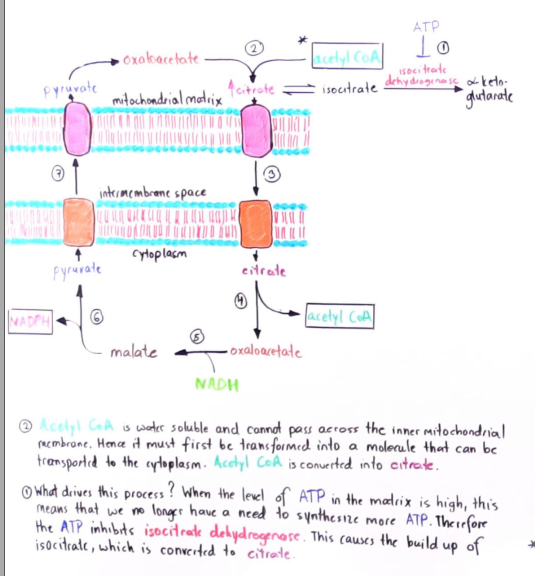 ATP
②
*
acetyl CoA
①
oxaloacetate
isocitrate
dehydrogenase
pyruvate
↑citrate
isocitrate
α-keto-
glutarate
mitochondrial matrix
⑦
③
intermembrane space
cytoplasm
pyruvate
citrate
④
NADPH
⑥
acetyl CoA
⑤
malate
oxaloacetate
NADH
② Acetyl CoA is water soluble and cannot pass across the inner mitochondrial
membrane. Hence it must first be transformed into a molecule that can be
transported to the cytoplasm. Acetyl CoA is converted into citrate.
① What drives this process? When the level of ATP in the matrix is high, this
means that we no longer have a need to synthesize more ATP. Therefore
the ATP inhibits isocitrate dehydrogenase. This causes the build up of
isocitrate, which is converted to citrate.
*